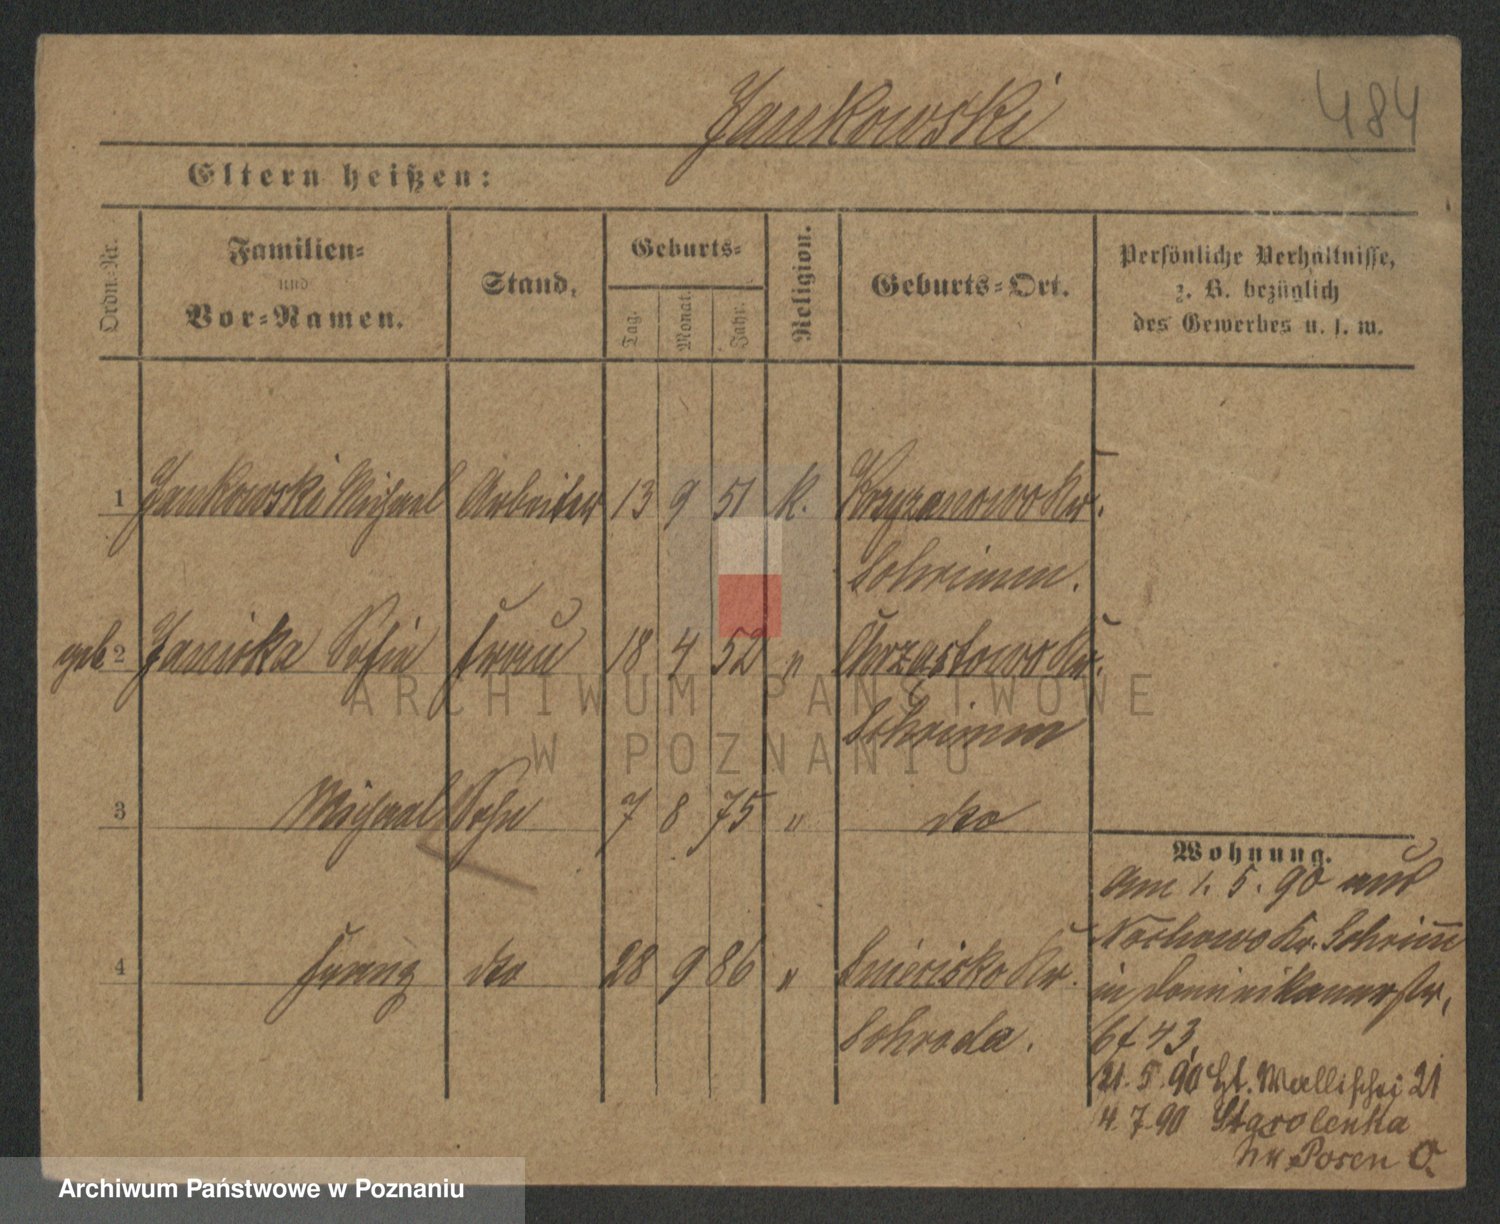 Jankowski
484
Eltern heißen:
Ordn.-Nr.
Familien-
und
Vor-Namen.
Stand.
Geburts-
Tag.
Monat.
Jahr.
Religion.
Geburts-Ort.
Persönliche Verhältnisse,
z. B. bezüglich
des Gewerbes u. s. w.
1 Jankowski Michael Arbeiter 13 9 51 K. Krzyzanowo Kr.
Schrimm.
geb 2 Janicka Sofie Frau 18 4 52 " Chrząstowo Kr.
Schrimm
3 Michael Sohn 7 8 75 " do
4 Franz do 28 9 86 " Kr.
Schroda.
Wohnung.
Am 1. 5. 90 aus
Nochowo Kr. Schrimm
in Dominikanerstr.
43
21. 5. 90 Wallischei 21
4. 7. 90 Starolenka
Kr Posen O.
ARCHIWUM PAŃSTWOWE
W POZNANIU
Archiwum Państwowe w Poznaniu